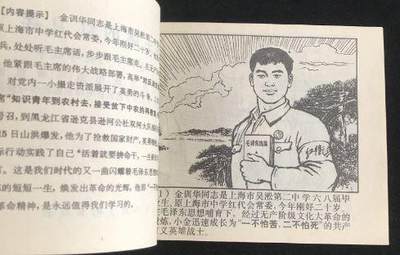 【内容提示】 金训华同志是上海市吴淞第二
原上海市中学红代会常委,今年刚好二十岁。
兵,处处听毛主席话,步步跟毛主席走,
他紧跟毛主席的伟大战略部署,高举
对党内一小撮走资派展开了英勇的斗争。
"知识青年到农村去,接受贫下中农的再教育
召,到黑龙江省逊克县逊河公社双河大队
5日山洪爆发,他为了抢救国家财产,英勇
际行动实践了自己"活着就要拚命干,一生
。这是我们时代的又一曲闪耀着毛泽东
的短短一生,焕发出革命的光辉,他那"一
革命精神,是永远值得我们学习的。
毛泽东选集
红卫兵
(1) 金训华同志是上海市吴淞第二中学六八届毕
业生,原上海市中学红代会常委,今年刚好二十岁。
在毛泽东思想哺育下,经过无产阶级文化大革命的
锻炼,小金迅速成长为"一不怕苦,二不怕死"的共产
主义英雄战士。